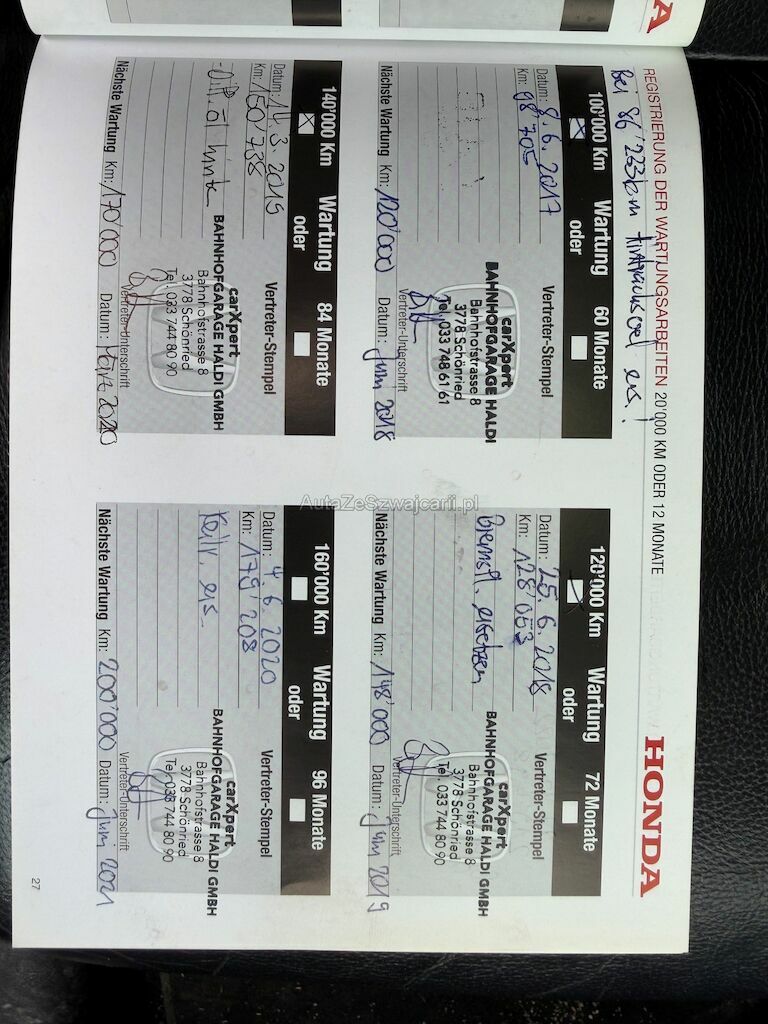 REGISTRIERUNG DER WARTUNGSARBEITEN 20'000 KM ODER 12 MONATE
HONDA
Bei 86'233km
100'000 Km Wartung 60 Monate
oder
Datum: 8.6.2017
Km: 98'705
Vertreter-Stempel
carXpert
BAHNHOFGARAGE HALDI
Bahnhofstrasse 8
3778 Schönried
Tel. 033 748 61 61
Vertreter-Unterschrift
Nächste Wartung Km: 120'000 Datum: Juni 2018
120'000 Km Wartung 72 Monate
oder
Datum: 25.6.2018
Km: 128'053
Bremsfl. ersetzen
Vertreter-Stempel
carXpert
BAHNHOFGARAGE HALDI GMBH
Bahnhofstrasse 8
3778 Schönried
Tel. 033 744 80 90
Vertreter-Unterschrift
Nächste Wartung Km: 148'000 Datum: Juni 2019
140'000 Km Wartung 84 Monate
oder
Datum: 14.3.2019
Km: 150'738
-Diff. öl hinten
Vertreter-Stempel
carXpert
BAHNHOFGARAGE HALDI GMBH
Bahnhofstrasse 8
3778 Schönried
Tel. 033 744 80 90
Vertreter-Unterschrift
Nächste Wartung Km: 170'000 Datum: März 2020
160'000 Km Wartung 96 Monate
oder
Datum: 4.6.2020
Km: 179'208
Keilr. ers.
Vertreter-Stempel
carXpert
BAHNHOFGARAGE HALDI GMBH
Bahnhofstrasse 8
3778 Schönried
Tel. 033 744 80 90
Vertreter-Unterschrift
Nächste Wartung Km: 200'000 Datum: Juni 2021
27
AutaZeSzwajcarii.pl